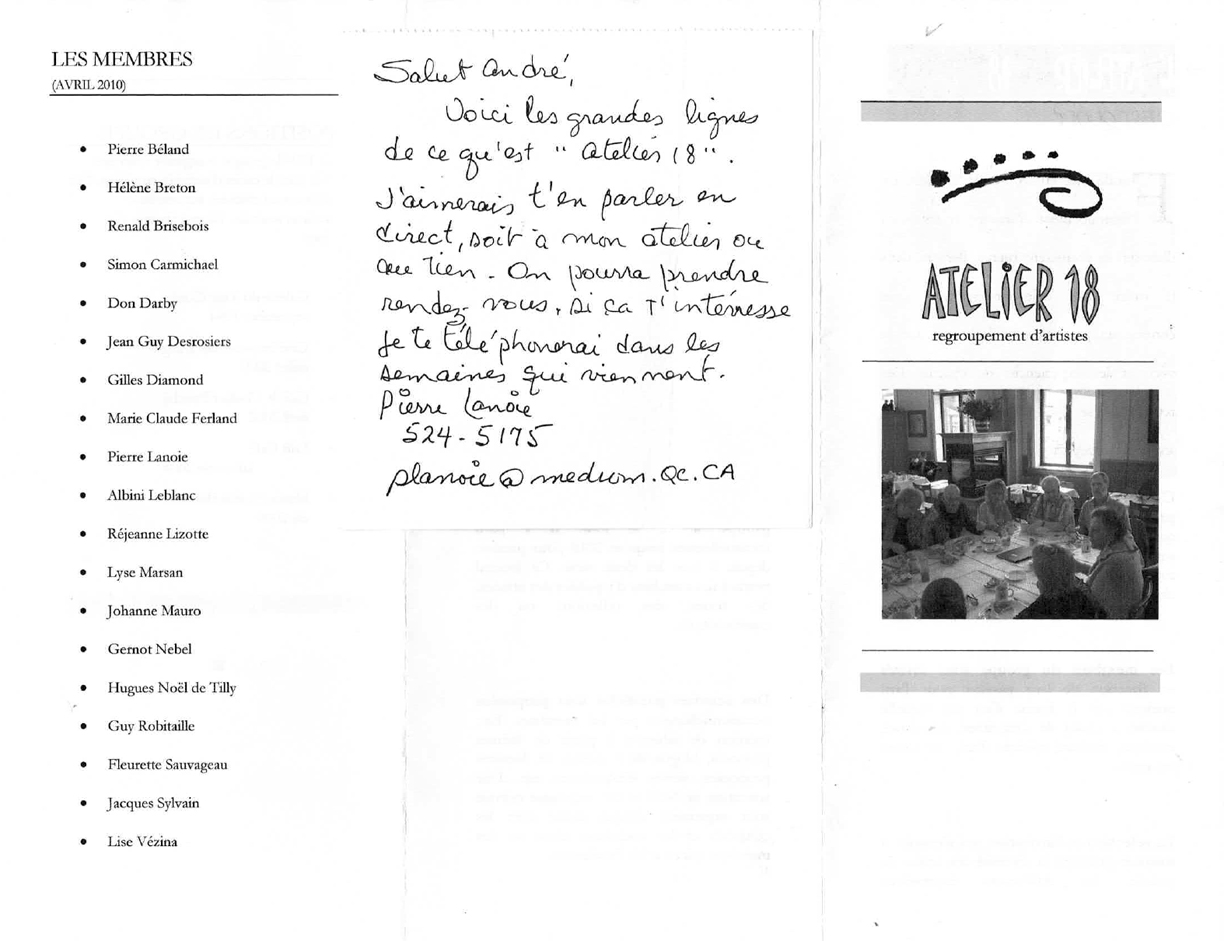 LES MEMBRES
(AVRIL 2010)
• Pierre Béland
• Hélène Breton
• Renald Brisebois
• Simon Carmichael
• Don Darby
• Jean Guy Desrosiers
• Gilles Diamond
• Marie Claude Ferland
• Pierre Lanoie
• Albini Leblanc
• Réjeanne Lizotte
• Lyse Marsan
• Johanne Mauro
• Gernot Nebel
• Hugues Noël de Tilly
• Guy Robitaille
• Fleurette Sauvageau
• Jacques Sylvain
• Lise Vézina
Salut André,
Voici les grandes lignes
de ce qu'est " atelier 18 ".
J'aimerais t'en parler en
direct, soit à mon atelier ou
au tien. On pourra prendre
rendez-vous, si ça t'intéresse
Je te téléphonerai dans les
semaines qui viennent.
Pierre Lanoie
524-5175
planoie@medium.QC.CA
ATELIER 18
regroupement d'artistes